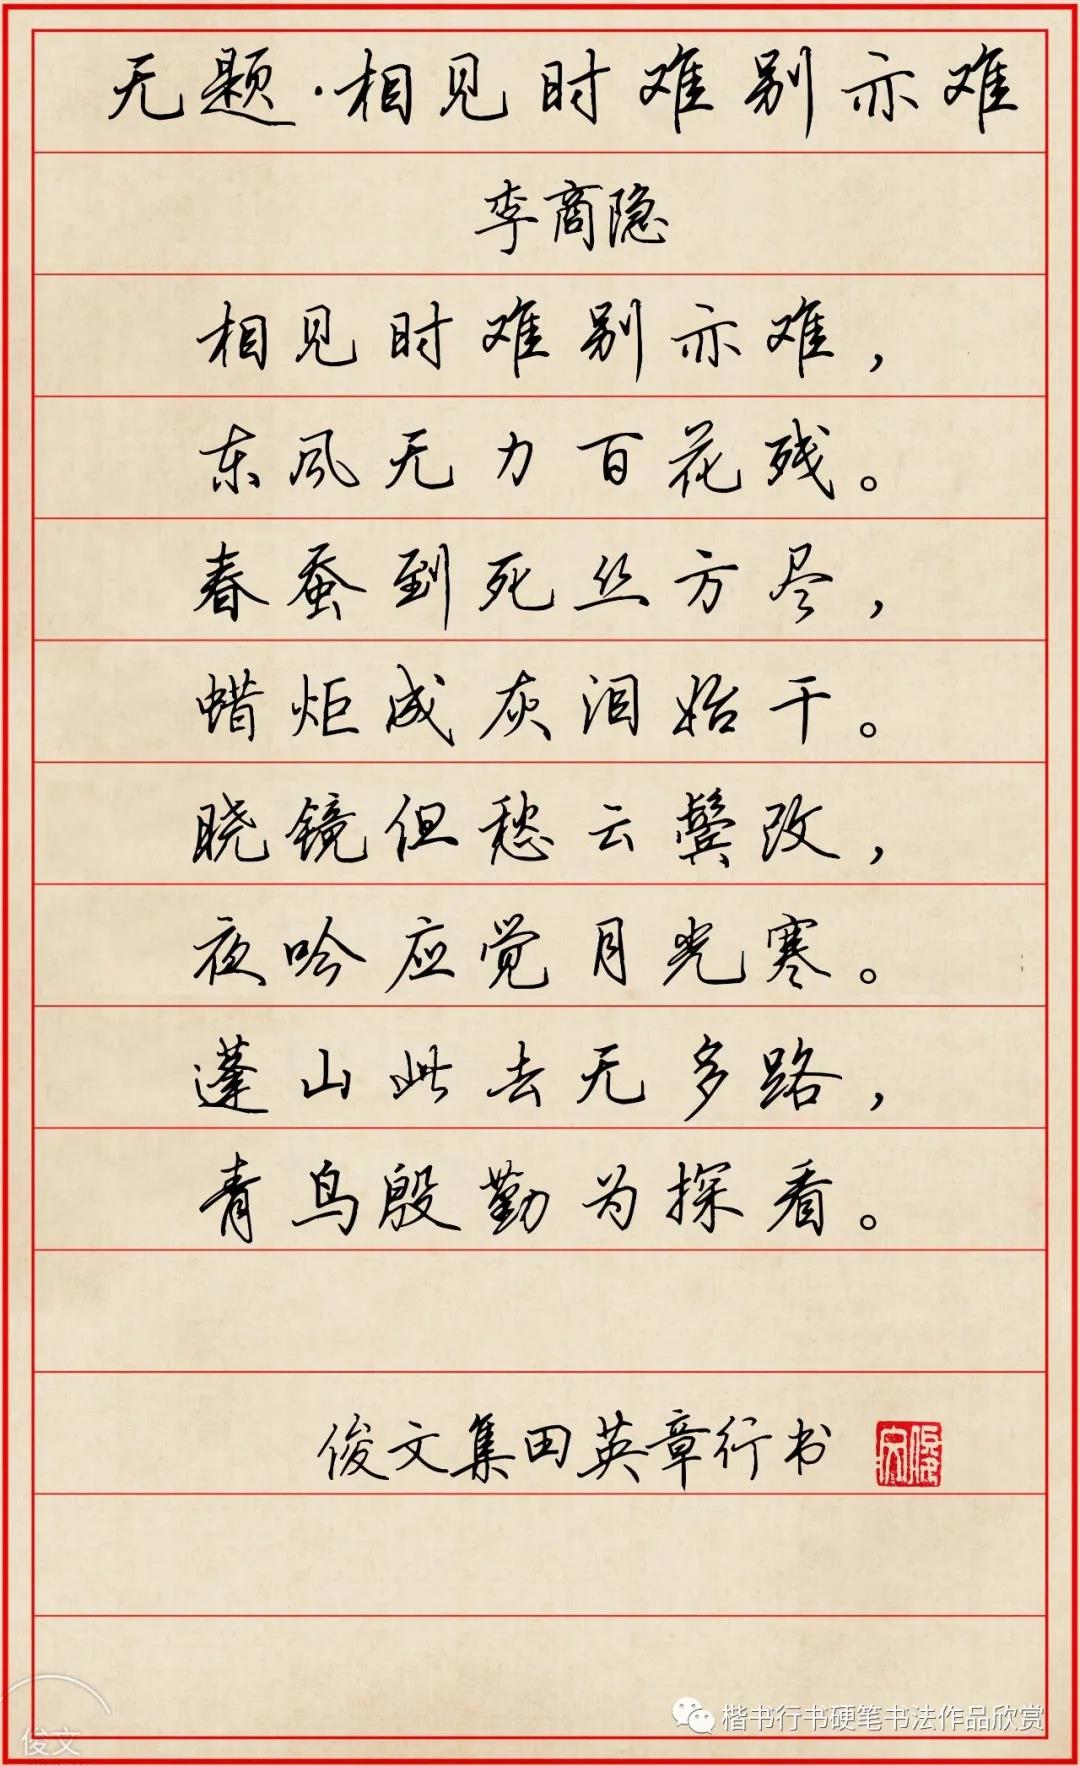 无题·相见时难别亦难
李商隐
相见时难别亦难，
东风无力百花残。
春蚕到死丝方尽，
蜡炬成灰泪始干。
晓镜但愁云鬓改，
夜吟应觉月光寒。
蓬山此去无多路，
青鸟殷勤为探看。
俊文集田英章行书
俊文
楷书行书硬笔书法作品欣赏
俊文